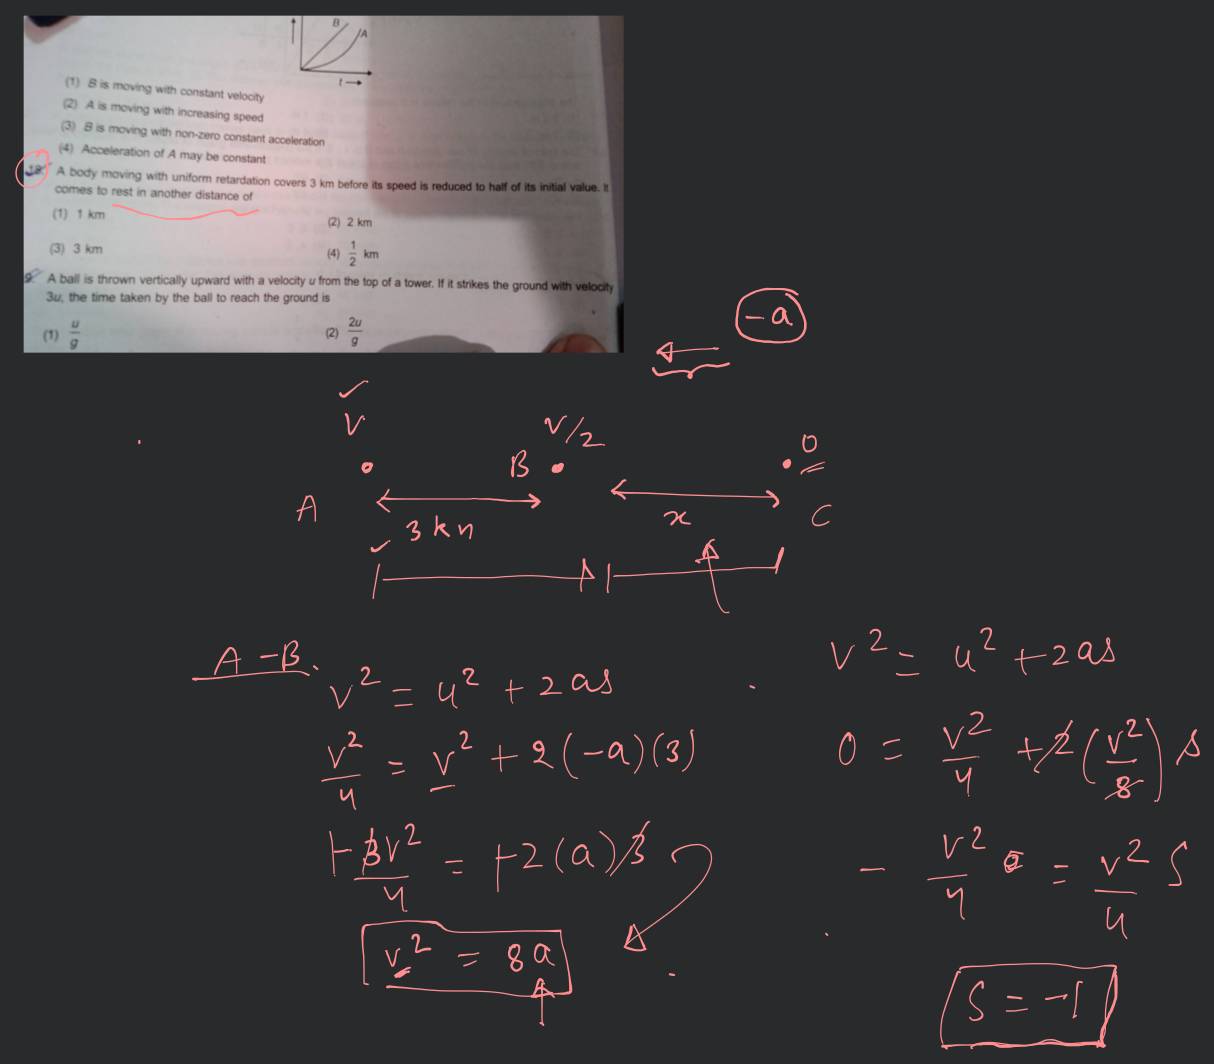 B
A
t
(1) B is moving with constant velocity
(2) A is moving with increasing speed
(3) B is moving with non-zero constant acceleration
(4) Acceleration of A may be constant
18. A body moving with uniform retardation covers 3 km before its speed is reduced to half of its initial value. It
comes to rest in another distance of
(1) 1 km
(2) 2 km
(3) 3 km
(4) 1/2 km
9. A ball is thrown vertically upward with a velocity u from the top of a tower. If it strikes the ground with velocity
3u, the time taken by the ball to reach the ground is
(1) u/g
(2) 2u/g
-a
V
V/2
0
A
B
C
3 km
x
A-B.
v² = u² + 2as
v²/4 = v² + 2(-a)(3)
-3v²/4 = -2(a)3
v² = 8a
v² = u² + 2as
0 = v²/4 + 2(v²/8)s
- v²/4 = v²/4 S
S = -1